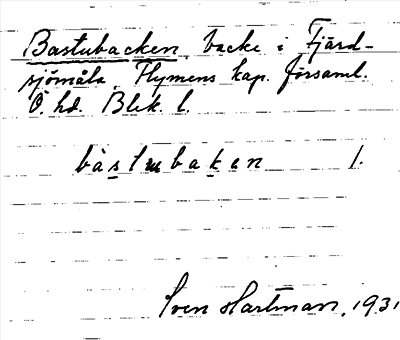 Bastubacken, backe i Fjärd-
sjömåla, Flymens kap. församl.
Ö hd. Blek. l.
bàstubakən 1.
Sven Hartman, 1931